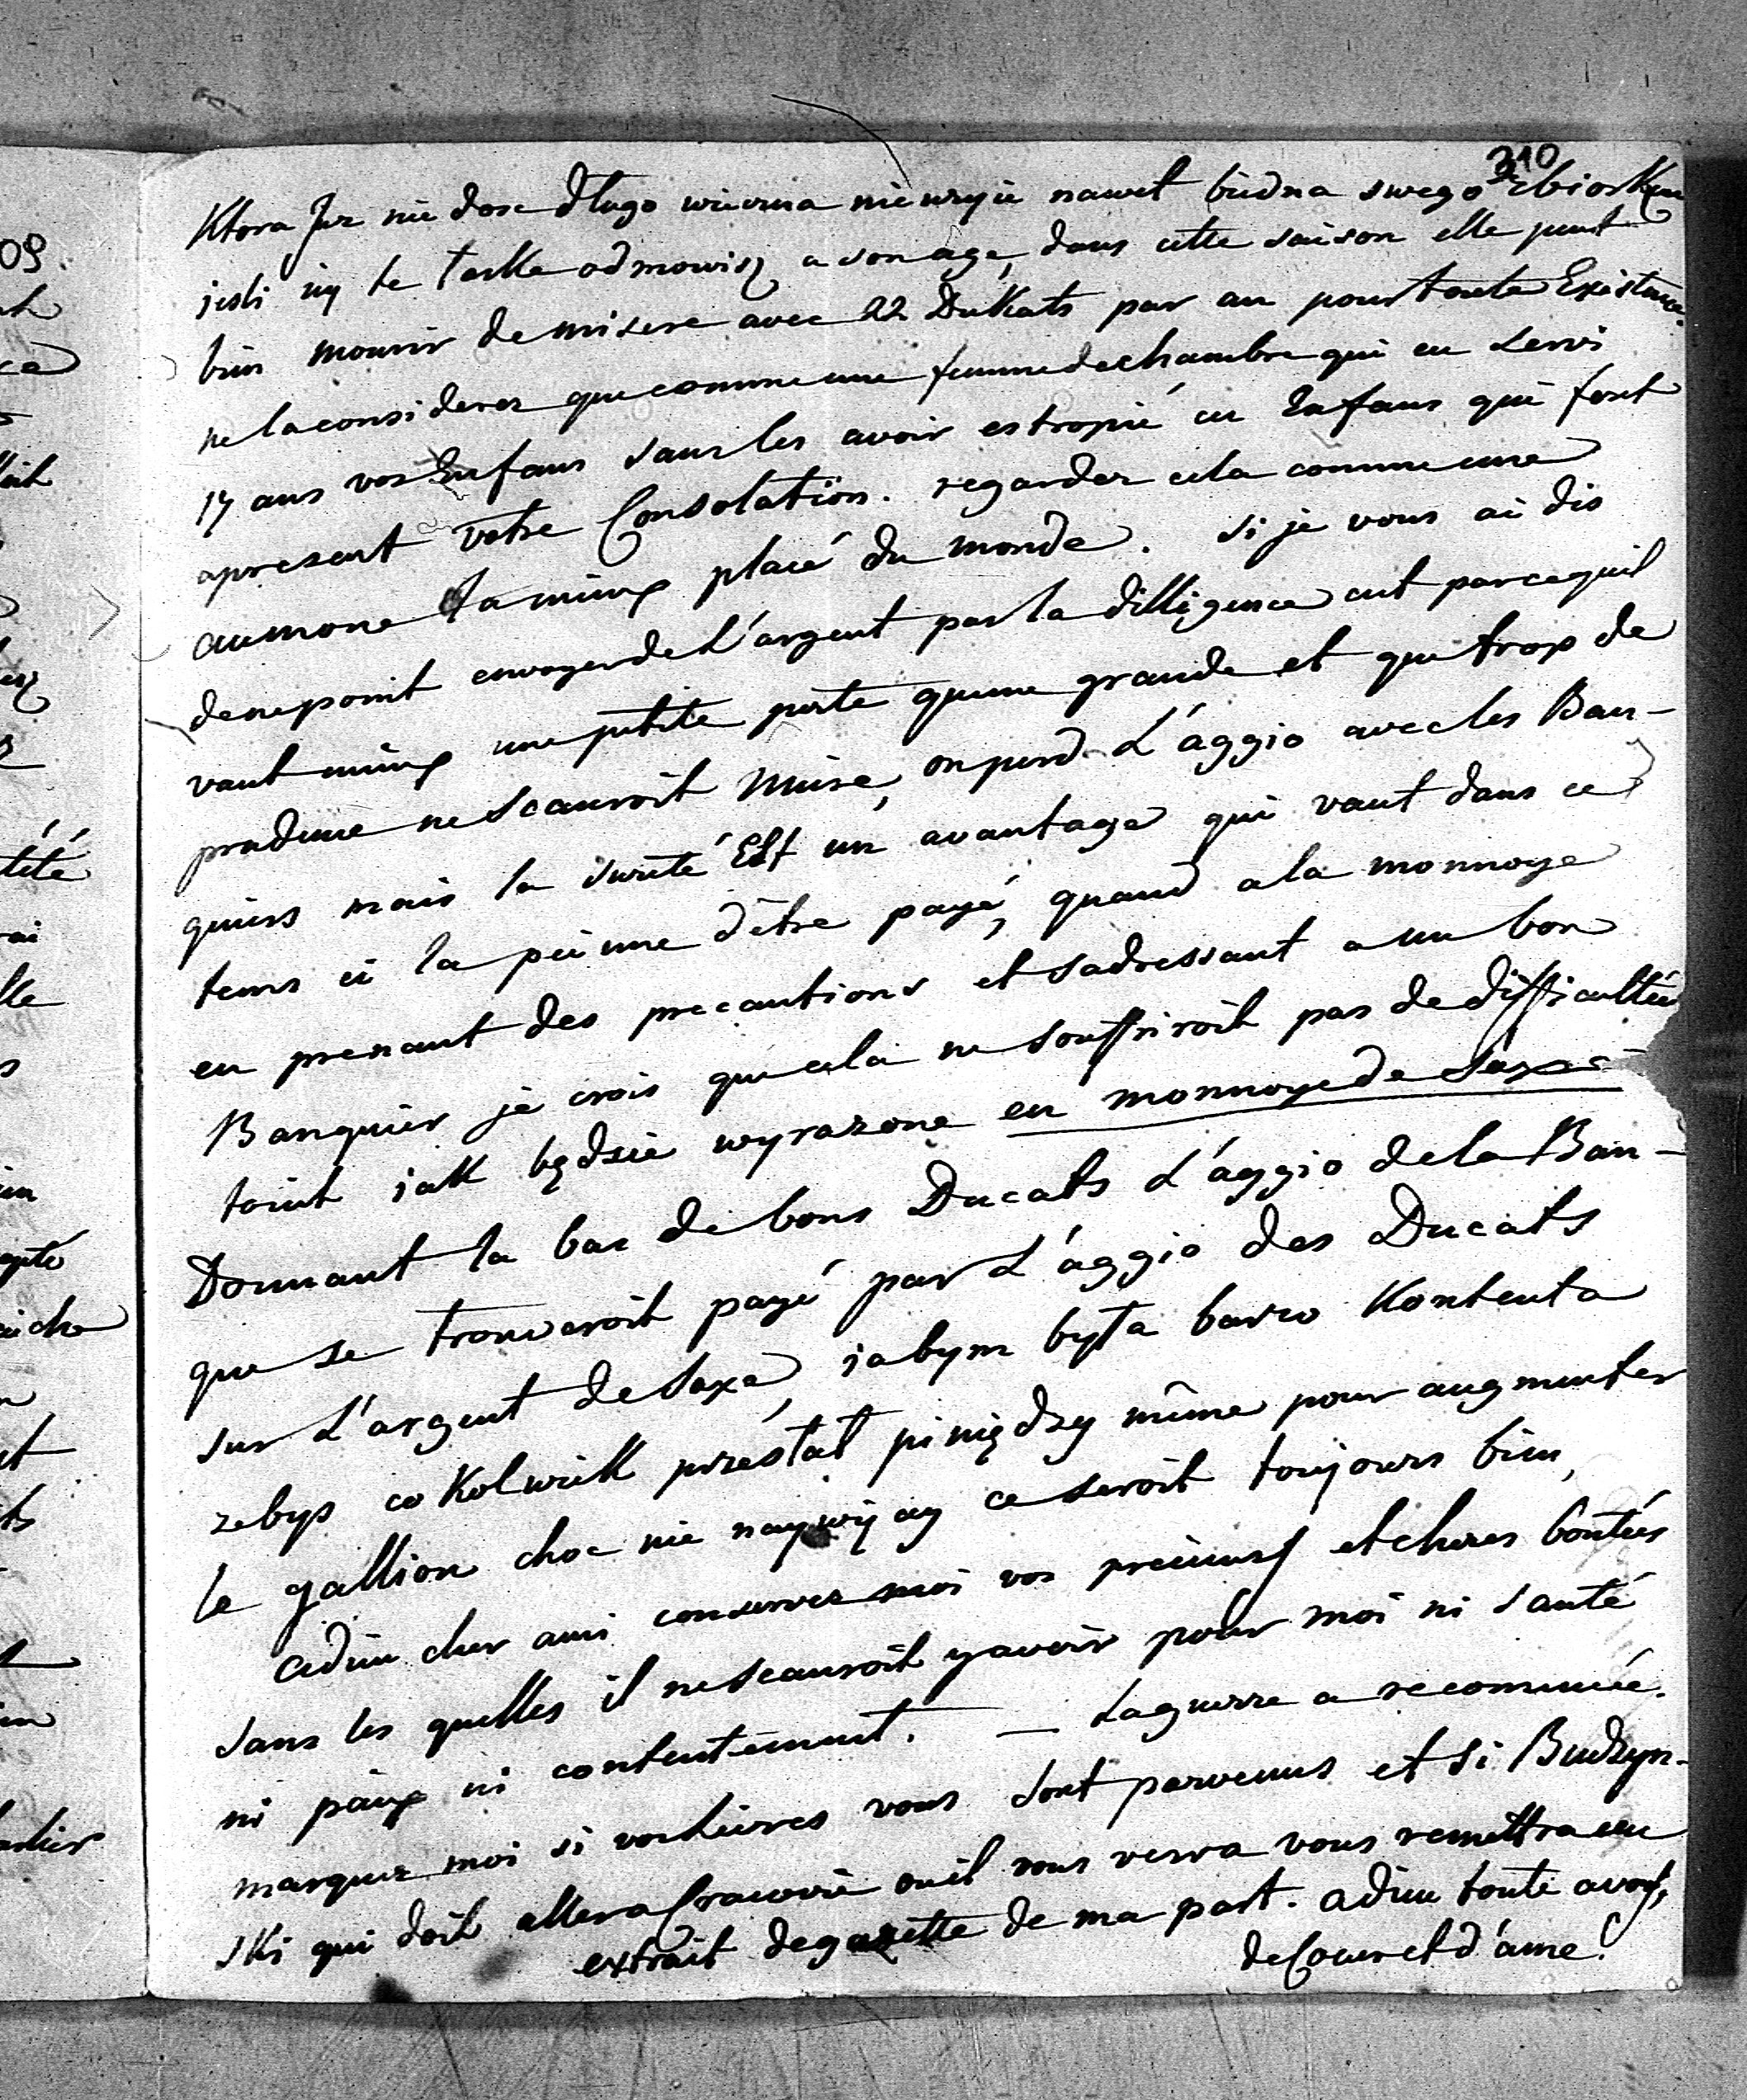 310
Ktora Juz nie dosc dlugo wierna nie uzyie nawet biedna swego zbiorku
jesli iey te łaske odmowisz a son age, dans cette saison elle peut
bien mourir de misere avec 22 DuKats par an pour toute Existance.
ne la considerez que comme une femme de chambre qui eu servi
17 ans vos Enfans sans les avoir estropié ces Enfans qui font
apresent votre Consolation. regardez cela comme une
aumone la mieux placé du monde. Si je vous ai dis
de ne point envoyer de L'argent par la dilligence cet parcequil
vaut mieux une petite perte qu'une grande et que trop de
prudence ne scauroit Nuire, on perd L'aggio avec les Ban-
quiers mais la sureté Est un avantage qui vaut dans ce
tems ci la peinne d'être payé, quand a la monnoye
en prenant des precautions et sadressant a un bon
Banquier je crois que cela ne souffriroit pas de difficultée
toint jak będzie wyrazone en monnoye de Saxe
Donnant la bas de bons Ducats L'aggio de la Ban-
que se trouveroit payé par L'aggio des Ducats
sur L'argent de Saxe, iabym była barzo Kontenta
zebys coKolwiek przesłał piniędzy même pour augmenter
le gallion choc nie naywięcy ce seroit toujours bien,
adieu cher ami conservez moi vos precieuses et cheres bontées
sans les quelles il ne scauroit y avoir pour moi ni santé
ni paix ni contentement. — La guerre a recommencée.
marquez moi si vos Livres vous sont parvenus et si Budzyn-
ski qui doit aller a Cracovie ou il vous verra vous remettra un
extrait de gazette de ma part. adieu toute a vous,
de Coeur et d'ame.